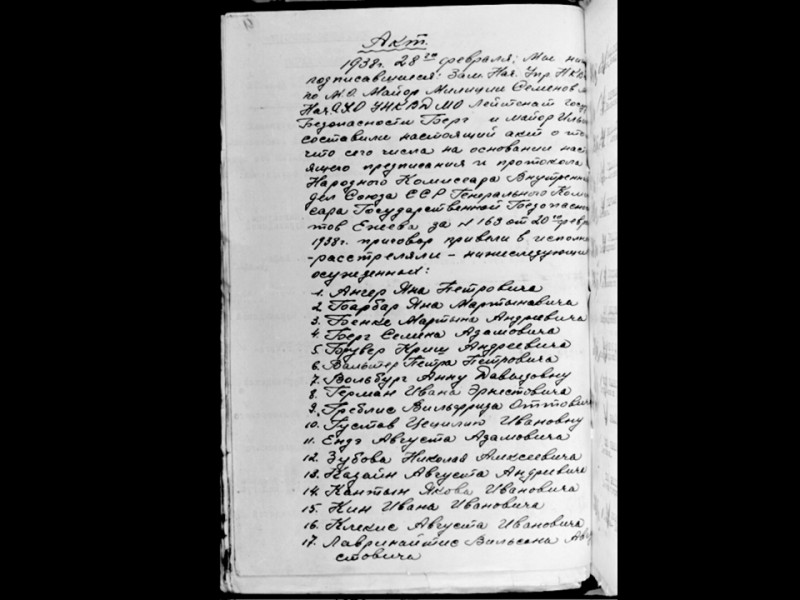 Акт.
1938г. 28го февраля: Мы ни
подписавшиеся: Зам. Нач. Упр. НКВД
по М.О. Майор Милиции Семенов
Нач. АХО УНКВД МО Лейтенат Госуд
Безопасности Берг и майор Ильи
составили настоящий акт о том
что сего числа на основании наст
ящего предписания и протокола
Народного Комиссара Внутренни
дел Союза ССР Генерального Комис
сара Государственной Безопасно
тов Ежова за N 163 от 20го февр
1938г. приговор привели в исполн
-расстреляли- нижеследующи
осужденных:
1. Ангер Яна Петровича
2. Барбар Яна Мартыновича
3. Бенке Мартына Андреевича
4. Берг Семена Адамовича
5. Брувер Криш Андреевича
6. Вальтер Петра Петровича
7. Вольбург Анну Давыдовну
8. Герман Ивана Эрнестовича
9. Греблис Вильфрида Оттович
10. Густав Цецилию Ивановну
11. Ендэ Августа Адамовича
12. Зубова Николая Алексеевича
13. Казайн Августа Андреевича
14. Кантын Якова Ивановича
15. Кин Ивана Ивановича
16. Клекис Августа Ивановича
17. Лавринайтис Вильсона Авгу
стовича